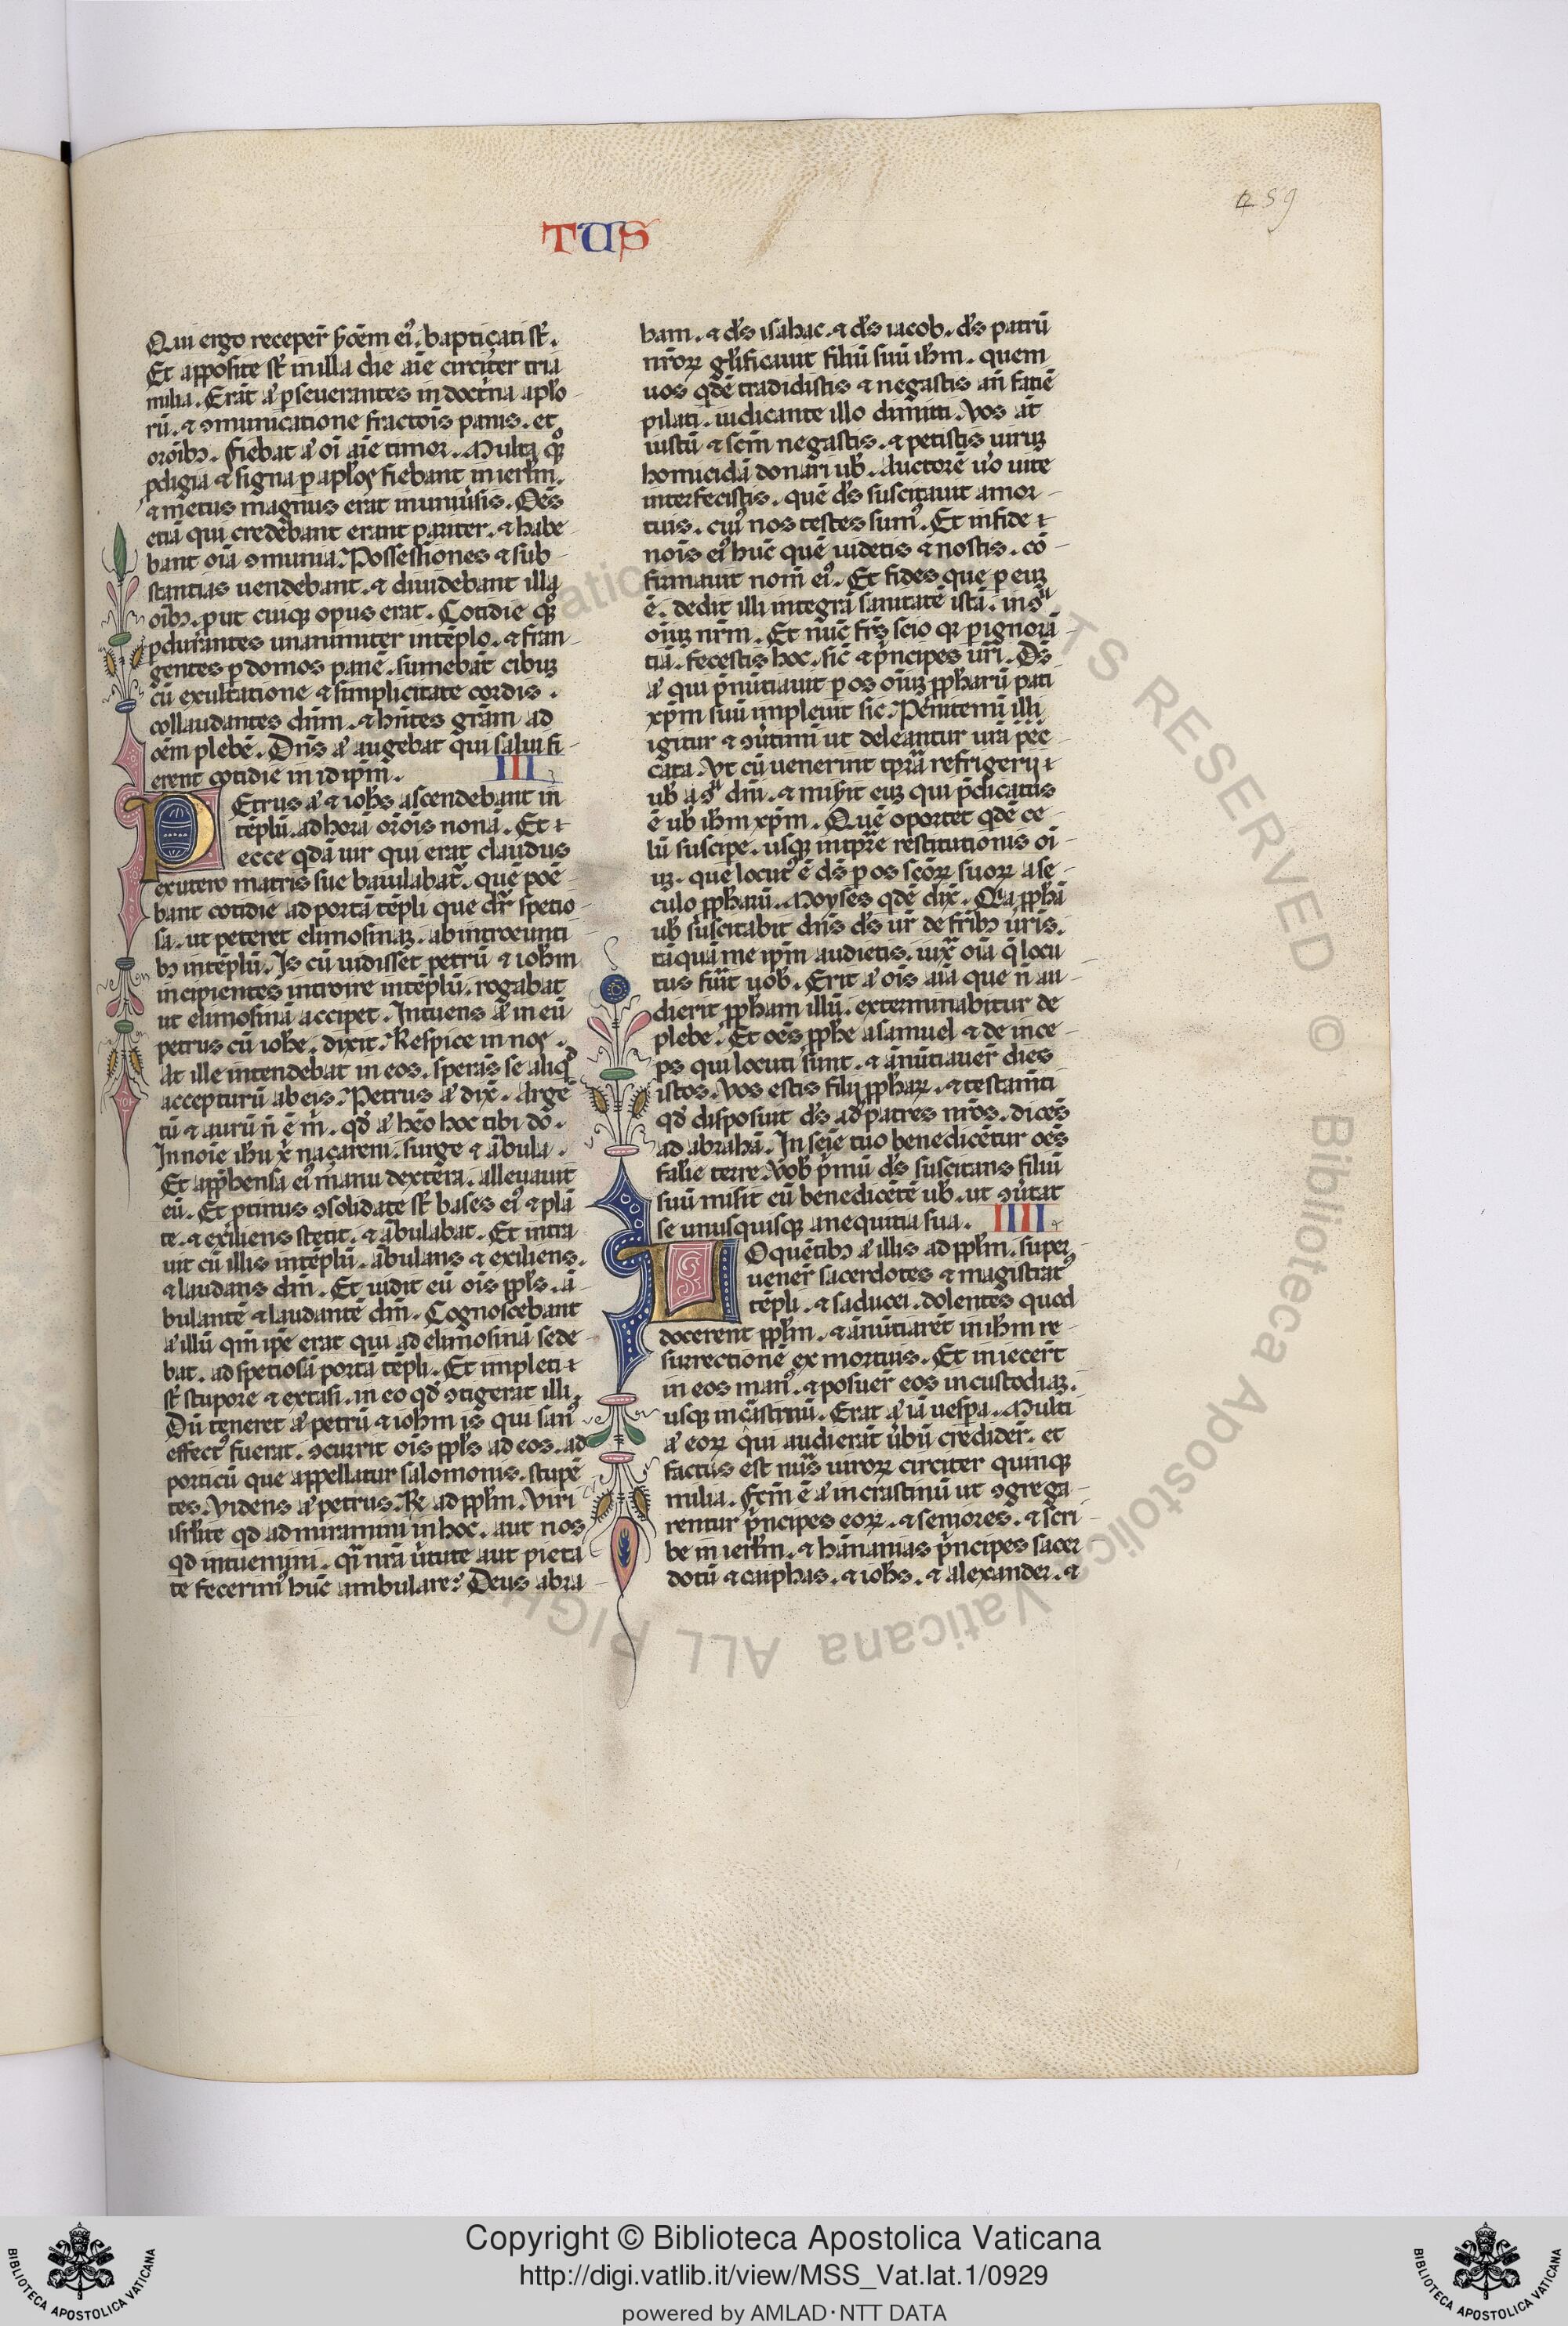 TUS
459
Qui ergo receper̄ ẜ̄oēm eiꝰ. bapticati st̄.
Et apposite st̄ in illa die aīe circiter tria
milia. Erāt aͤ ꝑseuerantes in doctͥna apło
rū. ⁊ ꝯmunicatione fractōis panis. et
orōibꝫ. fiebat aͤ oī aīe timor. Multa qꝫ
ꝓdigia ⁊ signa ꝑ apłos fiebant in ierłm.
⁊ metus magnus erat in uniuͥsis. Oēs
etiā qui credebant erant pariter. ⁊ habe
bant oīa ꝯmunia. Possessiones ⁊ sub
stantias uendebant. ⁊ diuidebant illa
oībꝫ. ꝓut cuiqꝫ opus erat. Cotidie qꝫ
ꝑdurantes unanimiter in tēplo. ⁊ fran
gentes ꝑ domos panē. sumebāt cibuꝫ
cū exultatione ⁊ simplicitate cordis.
collaudantes dn̄m. ⁊ hn̄tes grām ad
oēm plebē. Dn̄s aͤ augebat qui salui fi
erent cotidie in id ip̄m. III
PEtrus aͤ ⁊ ioh̄s ascendebant in
tēplū. ad horā orōis nonā. Et
ecce qdā uir qui erat claudus
ex utero matris sue baiulabat᷑. quē poē
bant cotidie ad portā tēpli que dr̄ spetio
sa. ut peteret elimosinaꝫ. ab introeunti
bꝫ in tēplū. Is cū uidisset petrū ⁊ ioh̄m
incipientes introire in tēplū. rogabat
ut elimosinā acciꝑet. Intuens aͤ in eū
petrus cū ioh̄e. dixit. Respice in nos.
At ille intendebat in eos. sperās se aliqͩ
accepturū ab eis. Petrus aͤ dix̄. Argē
tū ⁊ aurū n̄ ē m̄. qd̄ aͤ hēo hoc tibi do.
In noīe ih̄u x̄ naçareni. surge ⁊ ābula.
Et appͪhensa eiꝰ manu dextera. alleuauit
eū. Et ꝓtinus ꝯsolidate st̄ bases eiꝰ ⁊ plā
te. ⁊ exiliens stetit. ⁊ ābulabat. Et intra
uit cū illis in tēplū. ābulans ⁊ exiliens.
⁊ laudans dm̄. Et uidit eū ois ppłs. ā
bulantē ⁊ laudantē dm̄. Cognoscebant
aͤ illū qm̄ ip̄e erat qui ad elimosinā sede
bat. ad spetiosā portā tēpli. Et impleti
st̄ stupore ⁊ extasi. in eo qd̄ ꝯtigerat illi.
Dū teneret aͤ petrū ⁊ ioh̄m is qui sanꝰ
effectꝰ fuerat. ꝯcurrit ois ppłs ad eos. ad
porticū que appellatur salomonis. stupē
tes. Videns aͤ petrus. Re ad ppłm. Viri
isrł̄ite qd̄ admiramini in hoc. aut nos
qd̄ intuemini. qͣ nrā uͥtute aut pieta
te fecerimꝰ hūc ambulare? Deus abra
ham. ⁊ ds̄ isahac. ⁊ ds̄ iacob. ds̄ patrū
nr̄oꝝ głificauit filiū suū ih̄m. quem
uos qdē tradidistis ⁊ negastis an̄ faciē
pilati. iudicante illo dimitti. Vos āt
iustū ⁊ sc̄m negastis. ⁊ petistis uiruꝫ
homicidā donari ub̄. Auctorē uͦo uite
interfecistis. quē ds̄ suscitauit a mor
tuis. cuiꝰ nos testes sumꝰ. Et in fide
nōis eiꝰ hūc quē uidetis ⁊ nostis. cō
firmauit nom̄ eiꝰ. Et fides que ꝑ euꝫ
ē. dedit illi integrā sanitatē istā. in ꝯͧ
oīuꝫ nr̄m. Et nūc fr̄s scio qꝫ ꝑ ignorā
tiā. fecestis hoc. sic̄ ⁊ pͥncipes ur̄i. Ds̄
aͤ qui p̄nūtiauit ꝑ os oīuꝫ ppharū pati
xp̄m suū impleuit sic. Penitemī illi
igitur ⁊ ꝯuͥtimī ut deleantur ur̄a pēc
cata. Vt cū uenerint tp̄ra refrigerii
ub̄ a ꝯͧ dn̄i. ⁊ mis̄it euꝫ qui p̄dicatus
ē ub̄ ih̄m xp̄m. Quē oportet qdē ce
lū suscipe. usqꝫ in tp̄re restitutionis oī
uꝫ. que locutꝰ ē ds̄ ꝑ os sc̄oꝝ suoꝝ a se
culo ppharū. Moyses qdē dix̄. Qa pphā
ub̄ suscitabit dn̄s ds̄ ur̄ de fr̄ibꝫ ur̄is.
tāquā me ip̄m audietis. iuxͣ oīa q̄ locu
tus fūit uob̄. Erit aͤ oīs aīa que n̄ au
dierit ppham illū. exterminabitur de
plebe. Et oēs pphe a samuel ⁊ de ince
ps qui locuti sunt. ⁊ ānūtiauer̄ dies
istos. Vos estis filii pphaꝝ. ⁊ testam̄ti
qd̄ disposuit ds̄ ad patres nr̄os. dicēs
ad abrahā. In seīe tuo benedicētur oēs
falīe terre. Vob̄ pͥmū ds̄ suscitans filiū
suū misit eū benedicētē ub̄. ut ꝯuͥtat
se unusquisqꝫ a nequitia sua. IIII
LOquētibꝫ aͤ illis ad ppłm. super
uener̄ sacerdotes ⁊ magistratꝰ
tēpli. ⁊ saducei. dolentes quod
docerent ppłm. ⁊ ānūtiarēt in ih̄m re
surrectionē ex mortuis. Et iniecer̄t
in eos manꝰ. ⁊ posuer̄ eos in custodiaꝫ.
usqꝫ in cͣstinū. Erat aͤ iā uespa. Multi
aͤ eoꝝ qui audierāt uͥbū credider̄. et
factus est nūs uiroꝝ circiter quinqꝫ
milia. Fcm̄ ē aͤ in crastinū ut ꝯgrega
rentur pͥncipes eoꝝ. ⁊ seniores. ⁊ scri
be in ierłm. ⁊ hananias pͥncipes sacer
dotū ⁊ caiphas. ⁊ ioh̄s. ⁊ alexander. ⁊
Biblioteca Apostolica Vaticana ALL RIGHTS RESERVED ©
Copyright © Biblioteca Apostolica Vaticana
http://digi.vatlib.it/view/MSS_Vat.lat.1/0929
powered by AMLAD·NTT DATA
BIBLIOTECA APOSTOLICA VATICANA
BIBLIOTECA APOSTOLICA VATICANA